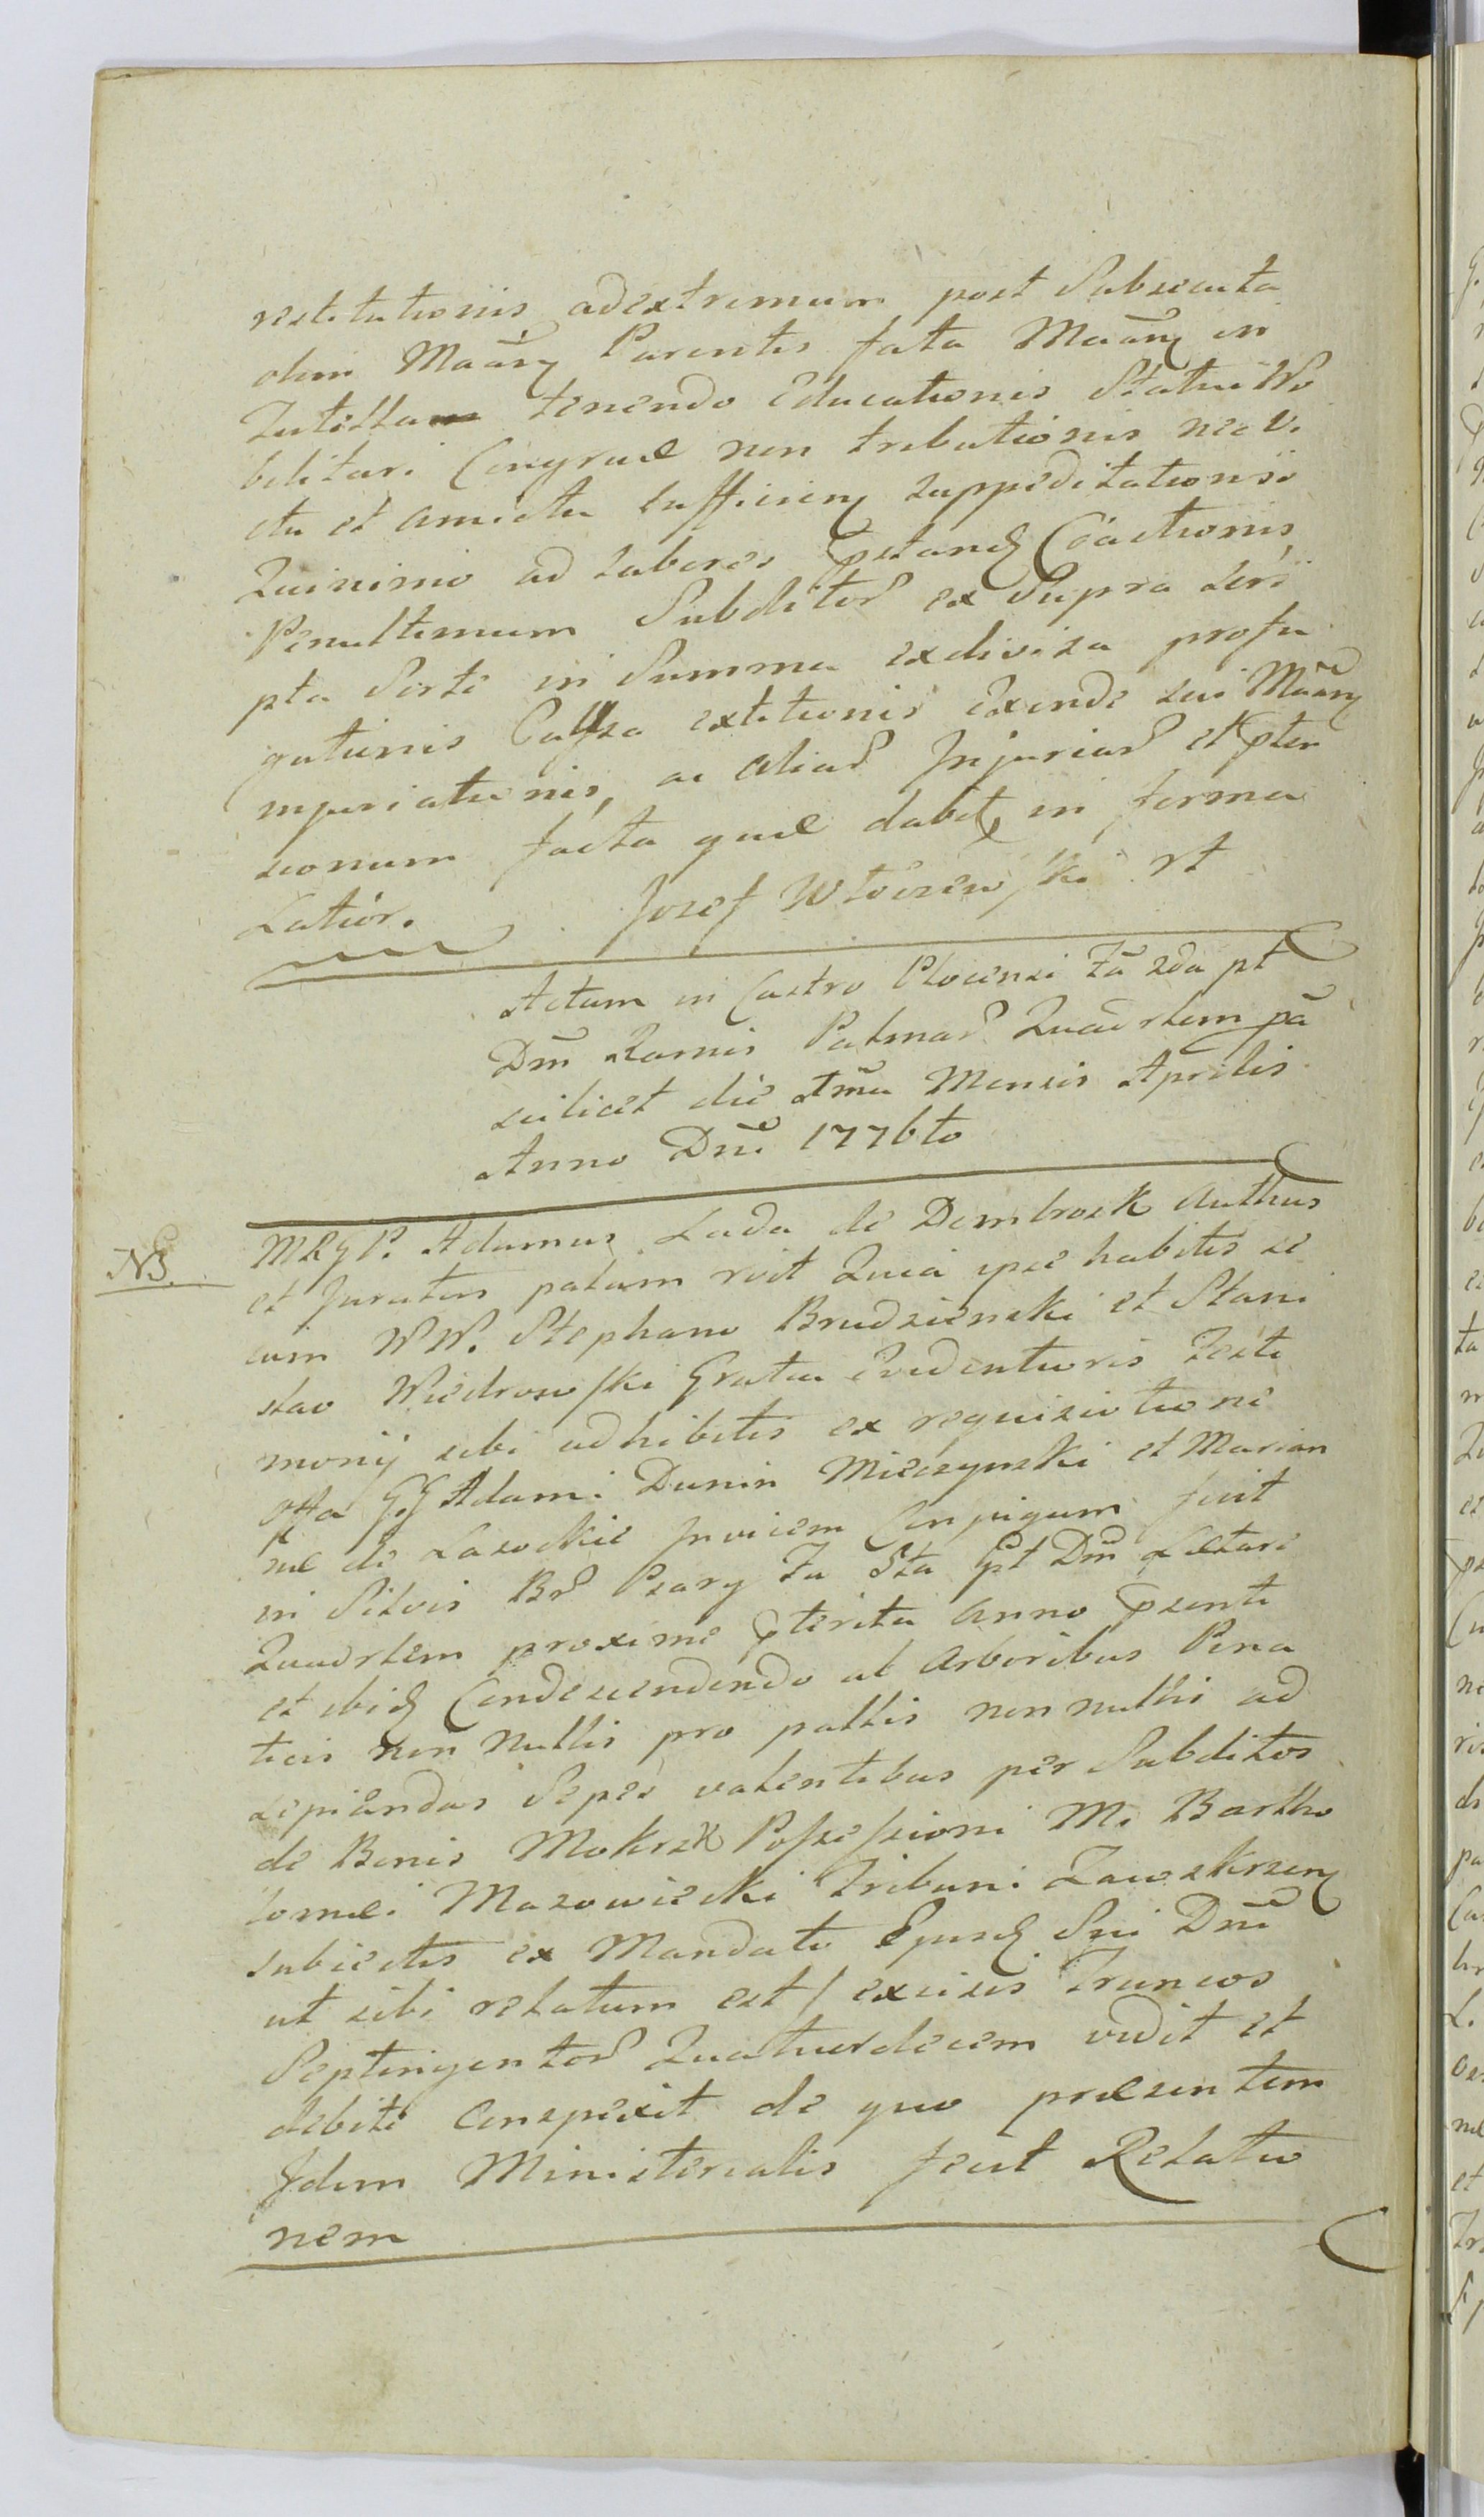 restitutionis adextremum post Subsecuta
olim Maãrq Parentis fata Maãrq in
Tutella tenendo Educationis Statui No
bilitari Congruae non tributionis nec vi
ctu et amictu sufficienq suppeditationis
Quinimo ad labores pstandq Coactionis,
Penultimum Subditor ex Supra scri
pta Sorte in Summa exdivisa profu
gationis Caussa extitionis Exinde sui Maãrq
injuriationis, ac aliar Injuriar et pten
sionum facta quae dabitq in forma
Latior.
Jozef Włoczewski rt
Actum in Castro Plocensi Fã 2da pt
Dm̃ Ramis Palmar Quadrlem pã
scilicet die 1mã Mensis Aprilis
Anno Dni 1776to
NB.
MRGP. Adamus Lada de Dembrosk Authus
et Juratus palam rivit Quia ipse habitis se
cum WW. Stephano Brudzienski et Stani
slao Wiedrowski Gratia Evidentioris Testi
monij sibi adhibitis ex requisiotione
offa GG Adami Dunin Mieczynski et Marian
nae de Lasockie Invicem Conjugum fuit
in Silvis Br Psary Fa Sta pt Dm̃ Laetare
Quadrlem proxime pterita Anno psenti
et ibidq Condescendendo ab Arboribus Pena
ticis non Nullis pro pallis non nullis ad
sepiandas Sepes valentibus per Subditos
de Bonis Mokrsk Possessioni M. Bartho
lomei Mazowiecki Tribuni Zawskrzenq
subiectis ex Mandato Ejusdq Sui Dni
ut sibi relatum est / excisis Truncos
Septingentor Quatuordecem vidit et
debite Conspexit de quo praesentem
Idem Ministerialis fecit Relatio
nem